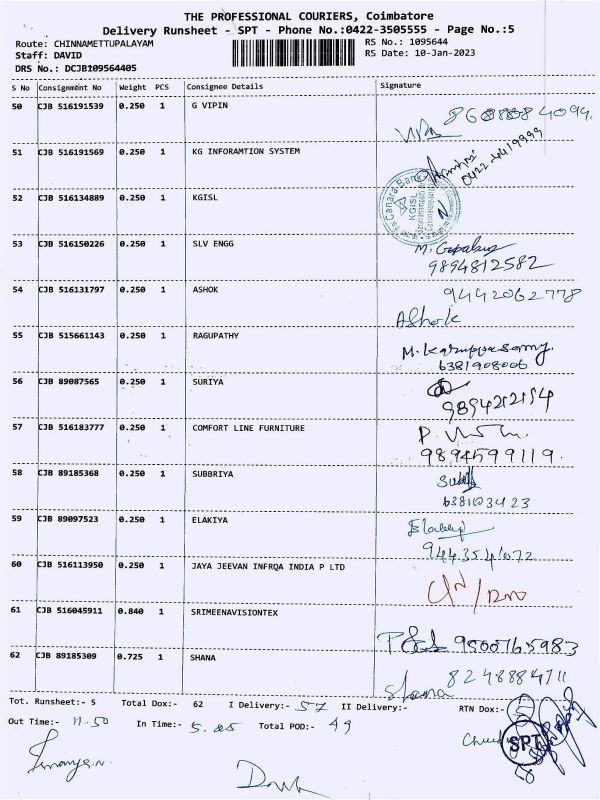 THE PROFESSIONAL COURIERS, Coimbatore
Delivery Runsheet - SPT - Phone No.:0422-3505555 - Page No.:5
Route: CHINNAMETTUPALAYAM RS No.: 1095644
Staff: DAVID RS Date: 10-Jan-2023
DRS No.: DCJB109564405
S No Consignment No Weight PCS Consignee Details Signature
50 CJB 516191539 0.250 1 G VIPIN
51 CJB 516191569 0.250 1 KG INFORAMTION SYSTEM 0422-4419999
52 CJB 516134889 0.250 1 KGISL
Canara Bank
KGISL
53 CJB 516150226 0.250 1 SLV ENGG
9894812582
54 CJB 516131797 0.250 1 ASHOK 9442062778
Ashok
55 CJB 515661143 0.250 1 RAGUPATHY M. Karuppasamy
6381908006
56 CJB 89087565 0.250 1 SURIYA
9894212154
57 CJB 516183777 0.250 1 COMFORT LINE FURNITURE
9894599119.
58 CJB 89185368 0.250 1 SUBBRIYA
59 CJB 89097523 0.250 1 ELAKIYA
60 CJB 516113950 0.250 1 JAYA JEEVAN INFRQA INDIA P LTD
61 CJB 516045911 0.840 1 SRIMEENAVISIONTEX 9500765983
62 CJB 89185309 0.725 1 SHANA 8248884711
Shana
Tot. Runsheet:- 5 Total Dox:- 62 I Delivery:- 57 II Delivery:- RTN Dox:- 5
Out Time:- 11.50 In Time:- 5.25 Total POD:- 49
SPT